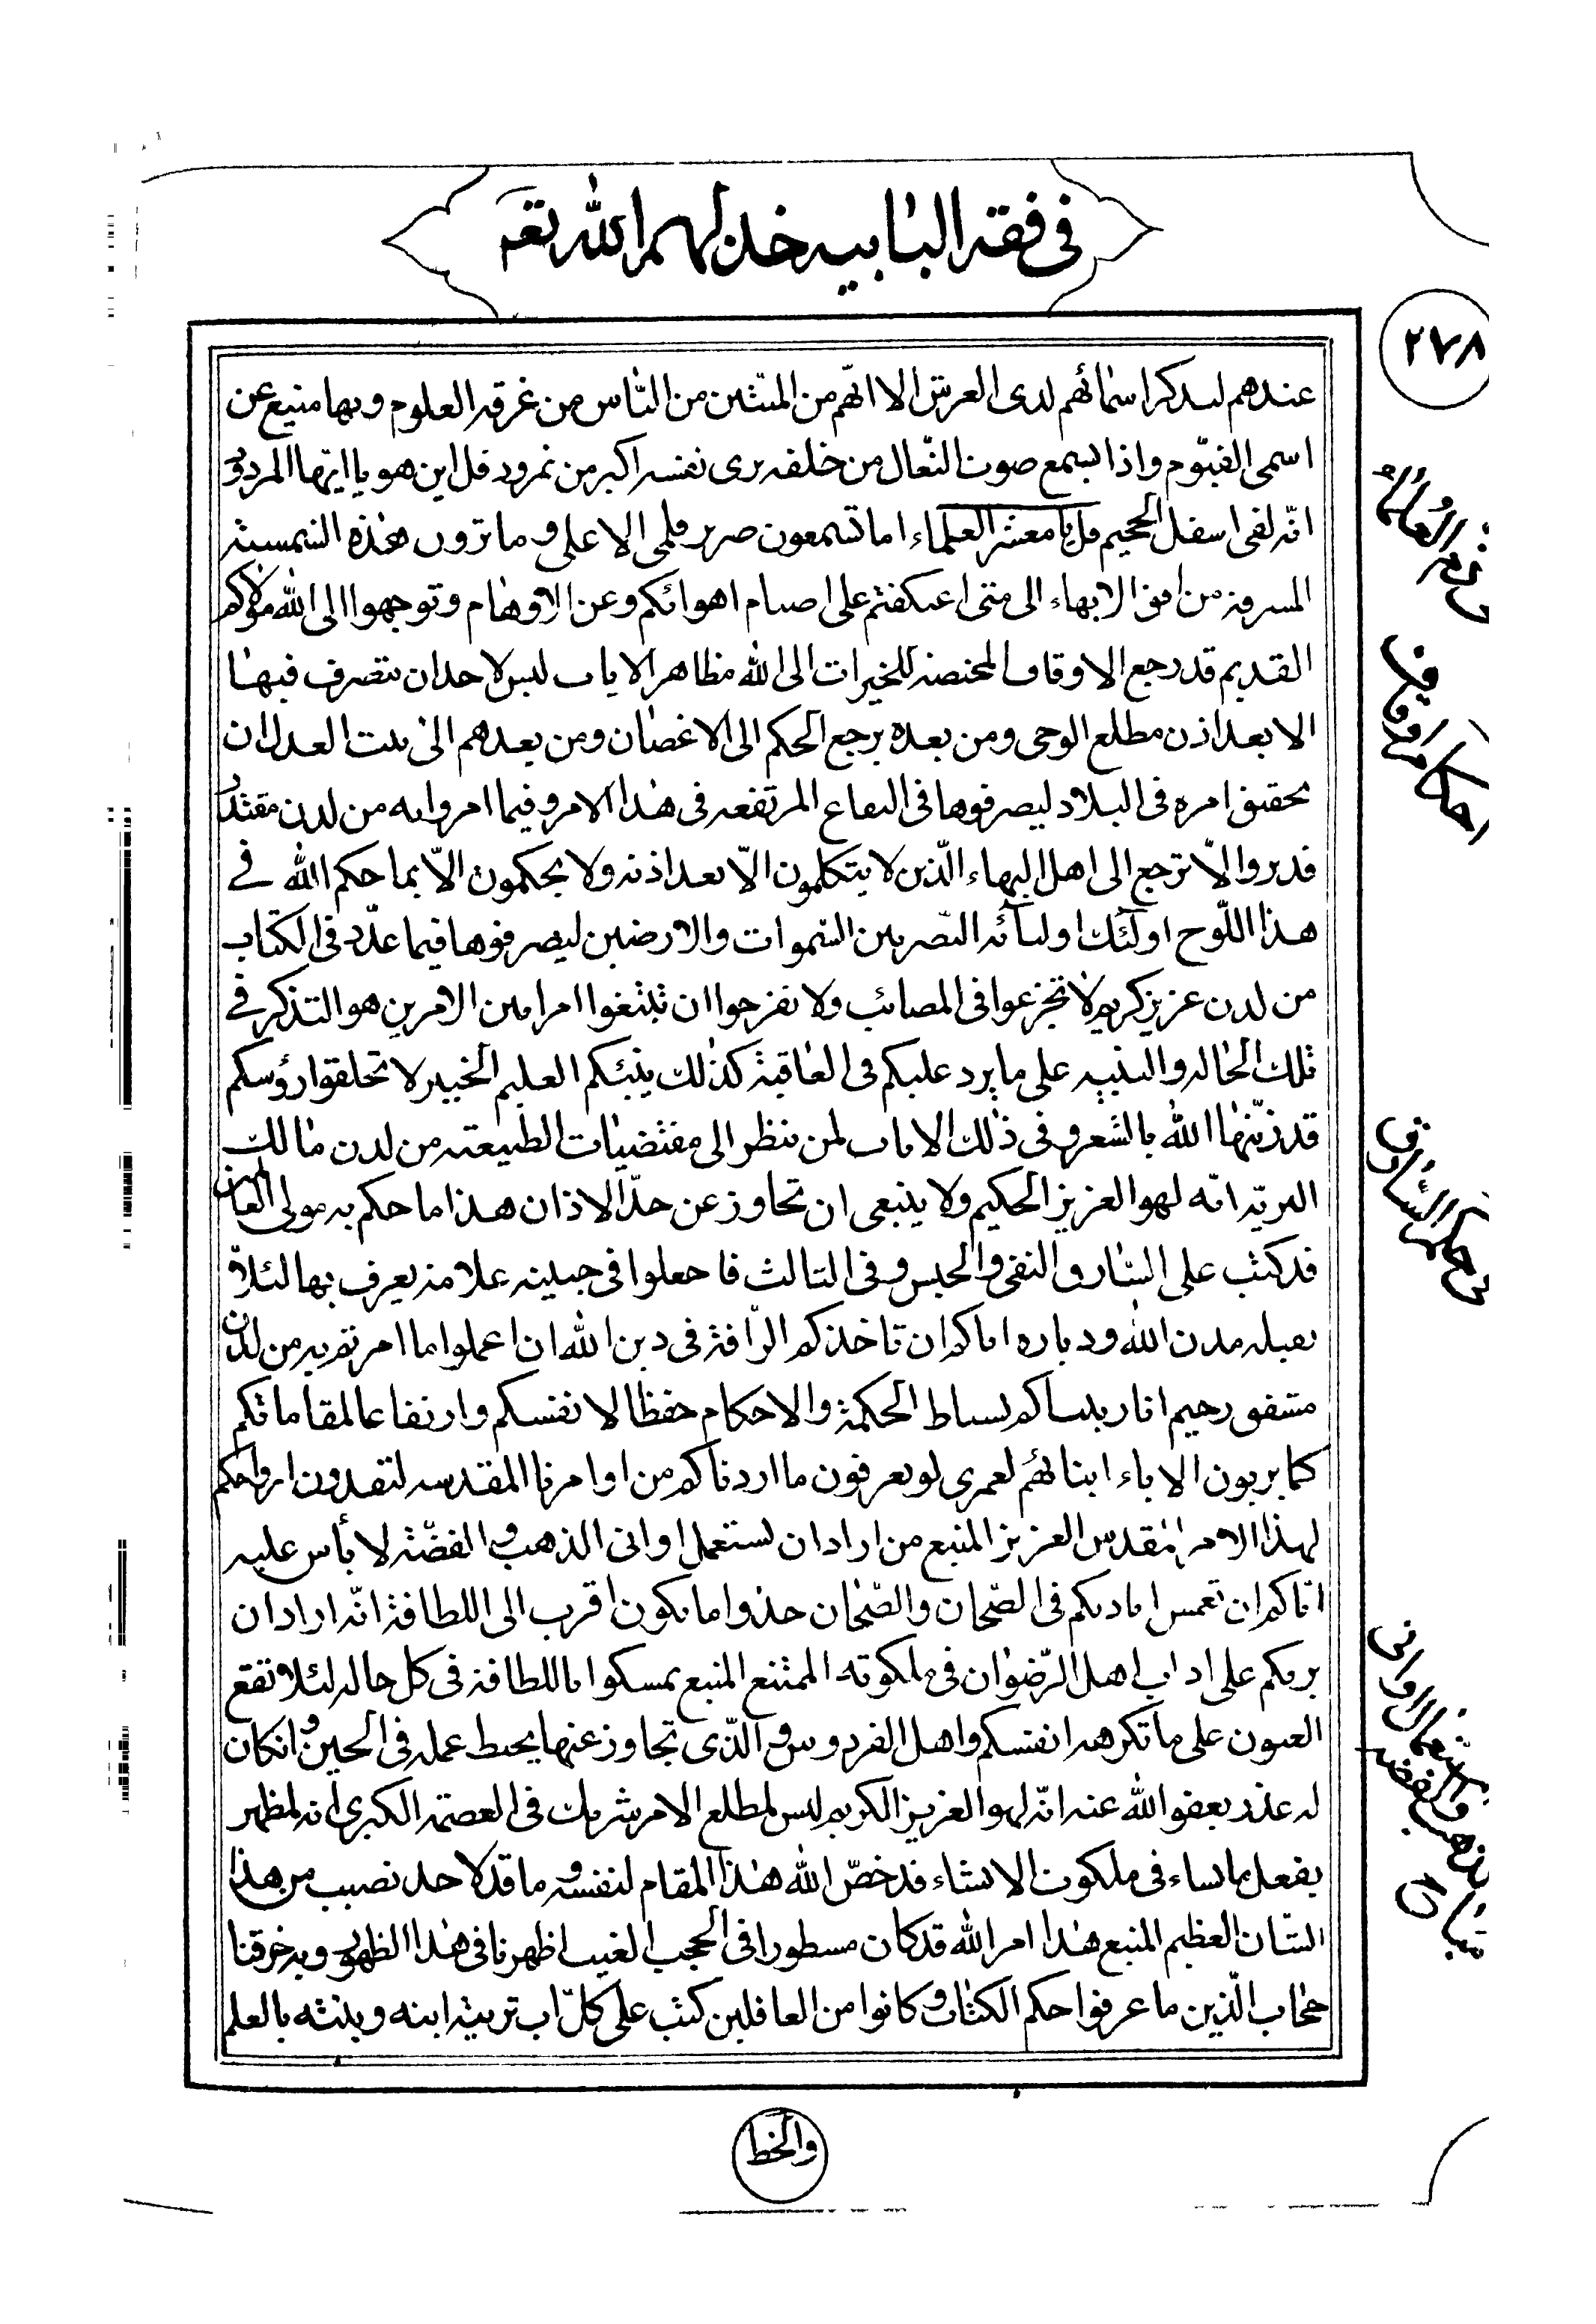 فى فقه البابيه خذلهم الله تعه
٢٧٨
عندهم ليذكر اسمائهم لدى العرش الا انّهم من الميّتين من النّاس من غرّته العلوم وبها منع عن
اسمى القيّوم واذا يسمع صوت النّعال من خلفه يرى نفسه اكبر من نمرود قل اين هو يا ايّها المردود
انّه لفى اسفل الجحيم قل يا معشر العلماء اما تسمعون صرير قلمى الاعلى و ما ترون هذه الشمس
المشرقة من افق الابهاء الى متى اعتكفتم على اصنام اهوائكم وعن الاوهام وتوجهوا الى الله مولاكم
القديم قد رجع الاوقاف المختصة للخيرات الى الله مظاهر الايات ليس لاحد ان يتصرف فيها
الا بعد اذن مطلع الوحى ومن بعده يرجع الحكم الى الاغصان ومن بعدهم الى بيت العدل ان
تحقق امره فى البلاد ليصرفوها فى البقاع المرتفعه فى هذا الامر و فيما امروا به من لدن مقتدر
قدير والّا ترجع الى اهل البهاء الّذين لا يتكلمون الّا بعد اذنه ولا يحكمون الّا بما حكم الله فى
هذا اللّوح اولئك اولياء النّصر بين السّموات والارضين ليصرفوها فيما عدّد فى الكتاب
من لدن عزيز كريم لا تجزعوا فى المصائب ولا تفرحوا ان ابتغوا امرا بين الامرين هو التذكر فى
تلك الحاله والتنبيه على ما يرد عليكم فى العاقبة كذلك ينبئكم العليم الخبير لا تحلقوا رؤسكم
قد زيّنها الله بالشعر و فى ذلك لايات لمن ينظر الى مقتضيات الطبيعته من لدن مالك
البريّه انّه لهو العزيز الحكيم ولا ينبغى ان تجاوز عن حدّ الاذان هذا ما حكم به مولى العالمين
قد كتب على السّارق النفى والحبس و فى الثالث فاجعلوا فى جبينه علامة يعرف بها لئلا
تقبله مدن الله و دياره اياكم ان تاخذكم الرّافة فى دين الله ان اعملوا ما امرتم به من لدن
مشفق رحيم انا ربيناكم بسياط الحكمة والاحكام حفظا لانفسكم وارتفاعا لمقاماتكم
كما يربون الاباء ابنائهم لعمرى لو تعرفون ما اردناكم من اوامرنا المقدسه لتفدون ارواحكم
لهذا الامر المقدس العزيز المنيع من اراد ان يستعمل اوانى الذهب و الفضّة لا بأس عليه
ايّاكم ان تغمس اياديكم فى الصّحان والصّحان خذوا ما يكون اقرب الى اللطافة انّه اراد ان
يريكم على اداب اهل الرّضوان فى ملكوته الممتنع المنيع تمسكوا باللطافة فى كل حاله لئلا تقع
العيون على ما تكرهه انفسكم واهل الفردوس و الّذى تجاوز عنها يحبط عمله فى الحين و انكان
له عذر يعفو الله عنه انّه لهو العزيز الكريم ليس لمطلع الامر شريك فى العصمة الكبرى انه لمظهر
يفعل ما يشاء فى ملكوت الانشاء قد خصّ الله هذا المقام لنفسه و ما قدّر لاحد نصيب من هذا
الشّان العظيم المنيع هذا امر الله قد كان مسطورا فى الحجب الغيب اظهرنا فى هذا الظهور و به خرقنا
حجاب الّذين ما عرفوا حكم الكتاب و كانوا من الغافلين كتب على كلّ اب تربية ابنه وبنته بالعلم
والخط
احكام اوقاف
حكم السّارق
استعمال اوانى
الذهب والفضه